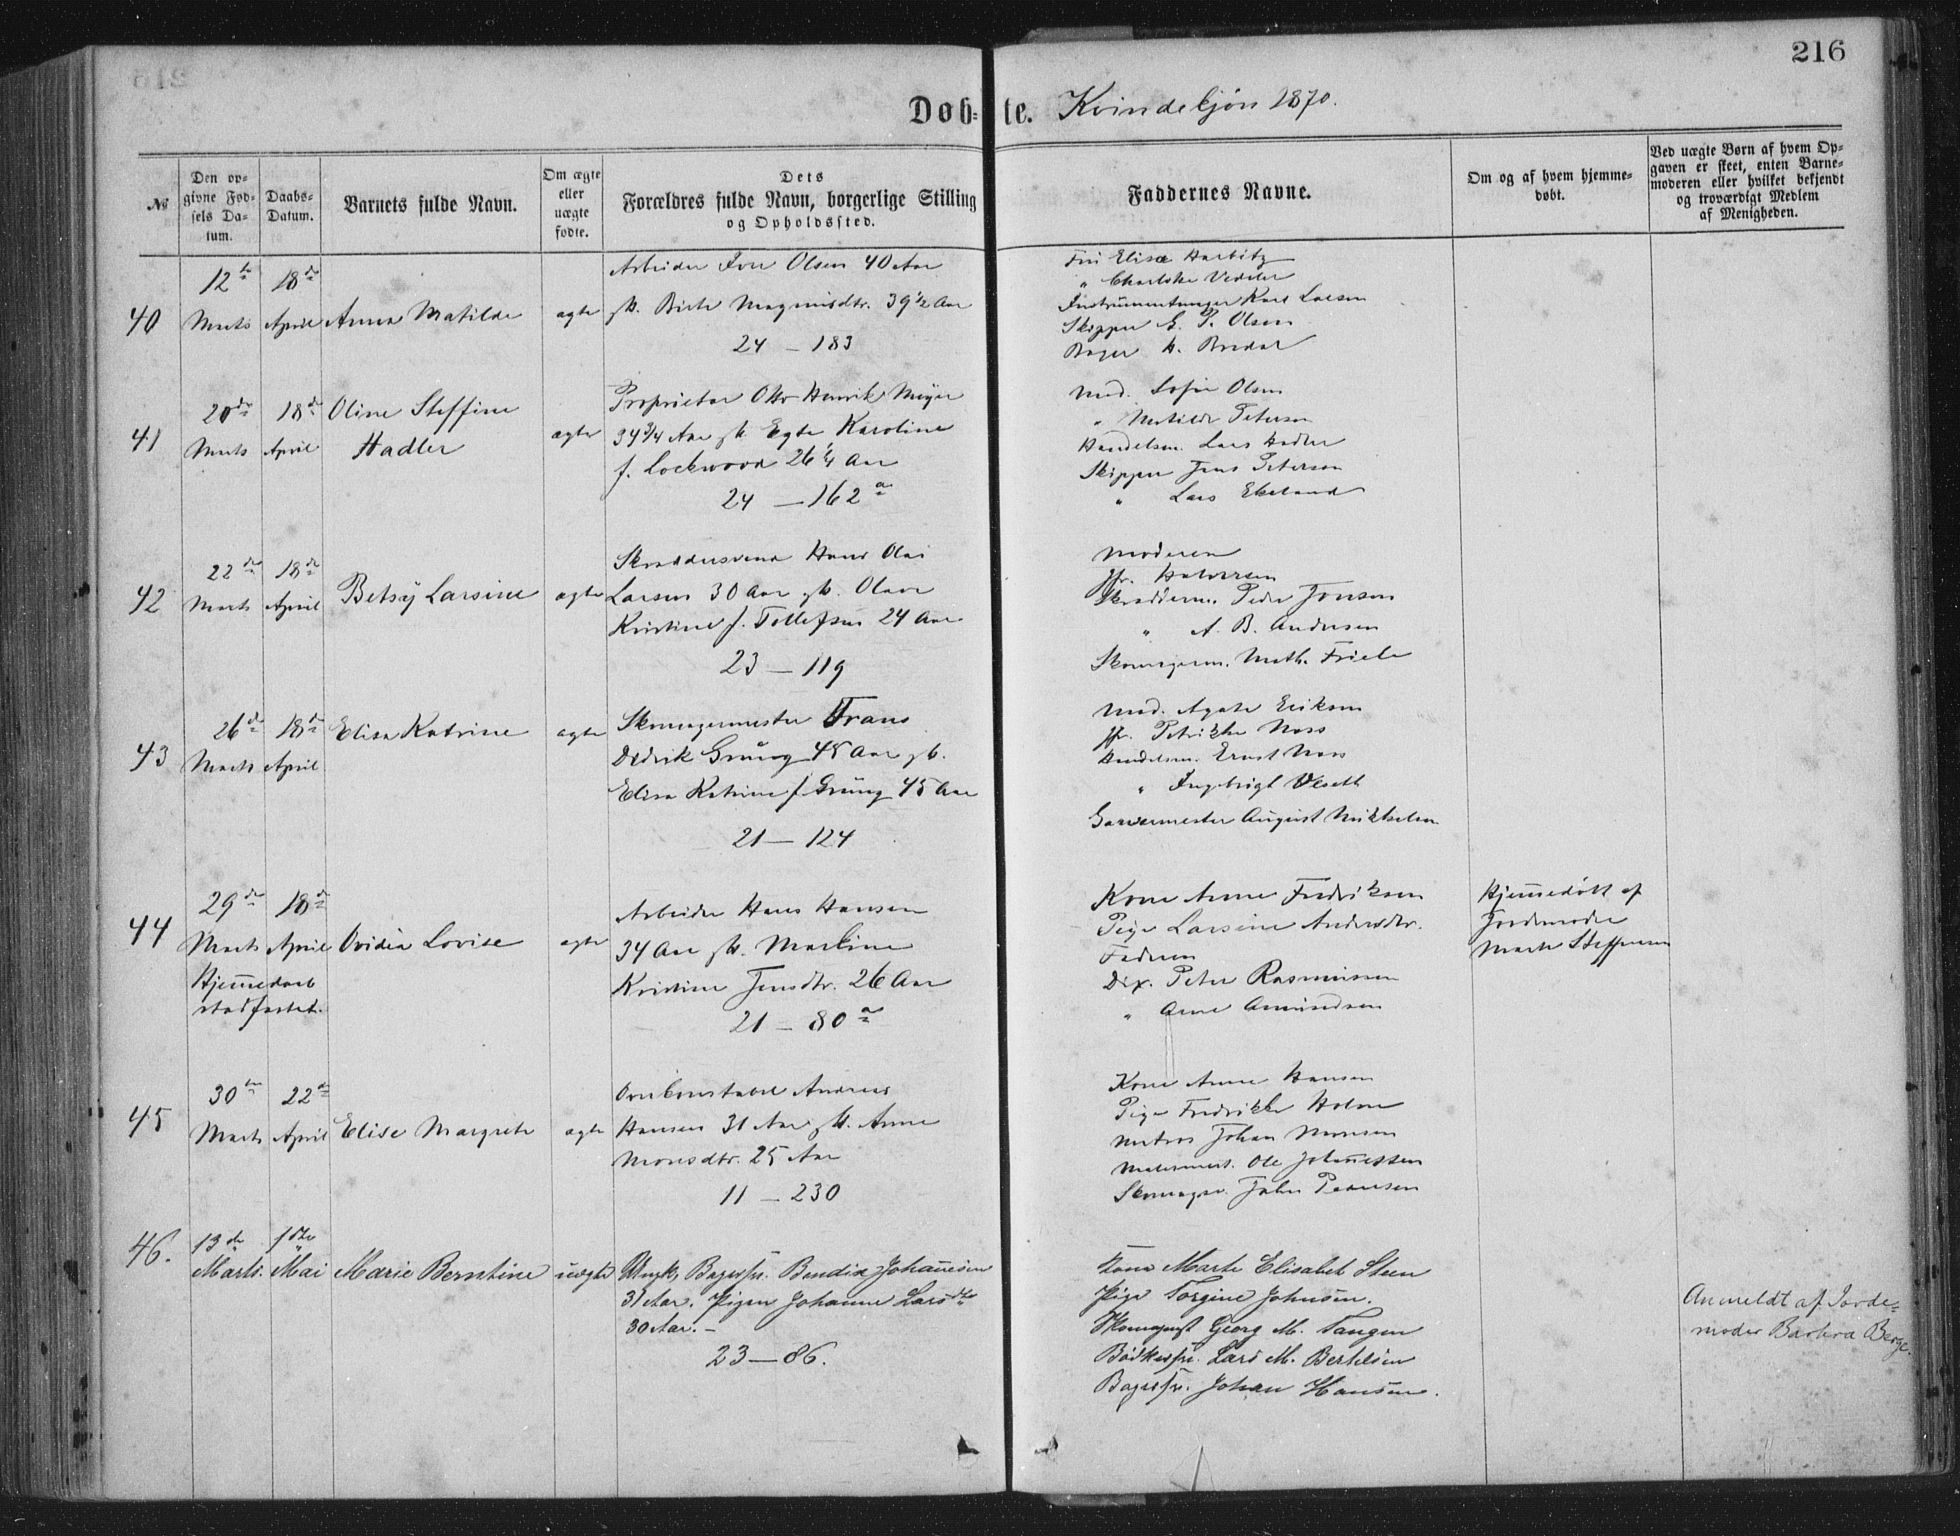 216
Døb-te. Kvindekjøn 1870.
No
Den op-
givne Fød-
sels Da-
tum.
Daabs-
Datum.
Barnets fulde Navn.
Om ægte
eller
uægte
fødte.
Dets
Forældres fulde Navn, borgerlige Stilling
og Opholdssted.
Faddernes Navne.
Om og af hvem hjemme-
døbt.
Ved uægte Børn af hvem Op-
gaven er skeet, enten Barne-
moderen eller hvilket bekjendt
og troværdigt Medlem
af Menigheden.
40
12te
Marts
18de
April
Anna Matilde
ægte
Arbeider Iver Olsen 40 Aar
Magnusdtr. 39½ Aar
24 – 183
Elise Harbitz
" Vedeler
Instrumentmager Karl Larsen
Skipper E. P. Olsen
Bager
41
20de
Marts
18de
April
Oline Steffine
Hadler
ægte
Proprietær Otto Henrik Meyer
34¾ Aar Egte Karoline
f. Lockwood 26¼ Aar
24 – 162a
Mad. Sofie Olsen
" Matilde Peterson
Handelsm. Lars Hadler
Skipper Jens Peterson
" Lars Ekeland
42
22de
Marts
18de
April
Betsy Larsine
ægte
Skræddersvend Hans Olai
Larsen 30 Aar Olave
Kristine f. Tollefsen 24 Aar
23 – 119
Moderen
Jfr. Halvorsen
Skrædderm. Peder Jonsen
" A. B. Andersen
Skomagerm. Math. Friele
43
26de
Marts
18de
April
Elisa Katrine
ægte
Skomagermester Frans
Didrik Grung 45 Aar
Elisa Katrine f. Grung 45 Aar
21 – 124
Mad. Agate Eriksen
Jfr. Petrikke Næss
Handelsm. Ernst Næss
" Ingebrigt Veseth
Garvermester August Mikkelsen
44
29de
Marts
18de
April
Hjemmedaab
stadfæstet.
Ovidia Lovise
ægte
Arbeider Hans Hansen
34 Aar Martine
Kristine Jensdtr. 26 Aar
21 – 80a
Kone Anne Fredriksen
Pige Larsine Andersdtr.
Faderen
Peter Rasmussen
" Arne Amundsen
Hjemmedøbt af
Jordemoder
Marte Steffensen
45
30te
Marts
22de
April
Elise Margrete
ægte
Overconstabel Andreas
Hansen 31 Aar Anne
Monsdtr. 25 Aar
11 – 230
Kone Anne Hansen
Pige Fredrikke Holm
Matros Johan Monsen
Malermest. Ole Johannessen
Skomager John Pedersen
46.
13de
Marts.
1ste
Mai
Marie Berntine
uægte
Ungk. Bagersv. Bendix Johannesen
31 Aar. Pigen Johanne Larsdtr
30 Aar. –
23 – 86.
Kone Marte Elisabet Steen
Pige Torgine Johnsen.
Georg M. Tangen
Bødkersv. Lars M. Bertelsen
Bagersv. Johan Hansen.
Anmeldt af Jorde-
moder Barbra Berge.